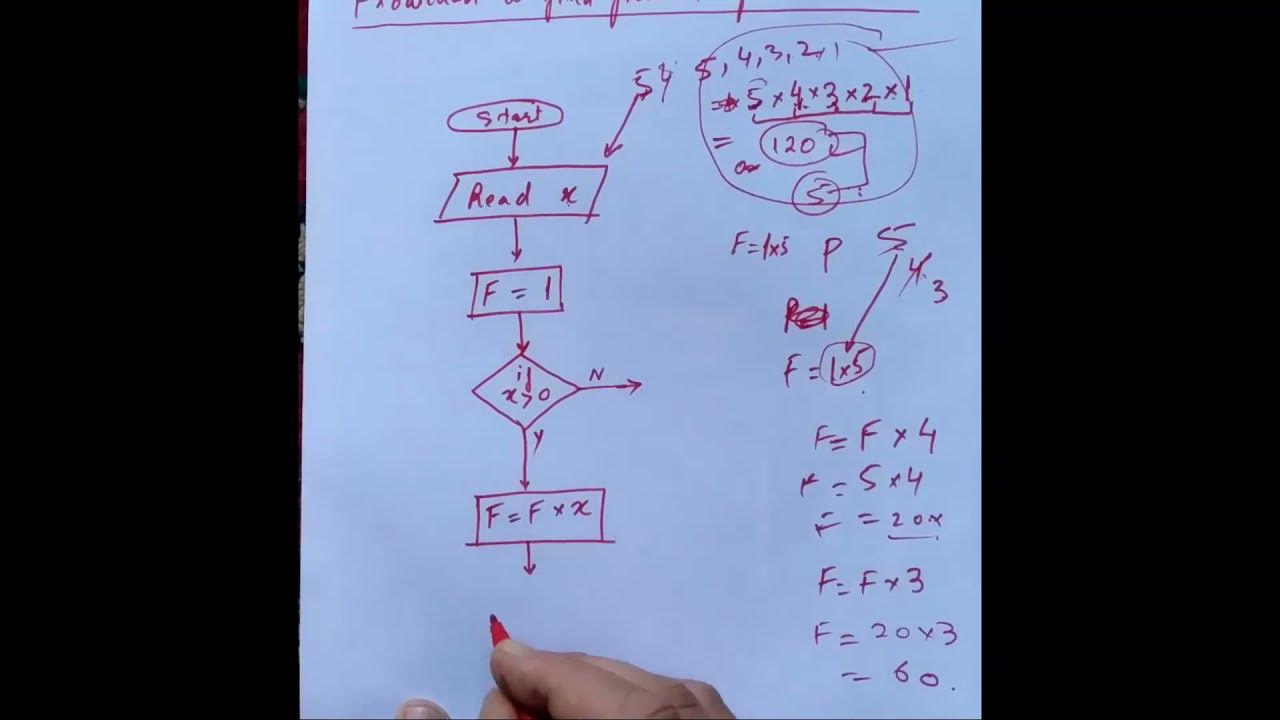 5 4 5, 4, 3, 2, 1
= 5 × 4 × 3 × 2 × 1
= 120
5
Start
Read x
F = 1
if
x > 0
N
Y
F = F × x
F = 1×5 P 5
4
3
F = 1×5
F = F × 4
F = 5 × 4
F = 20x
F = F × 3
F = 20 × 3
= 60.